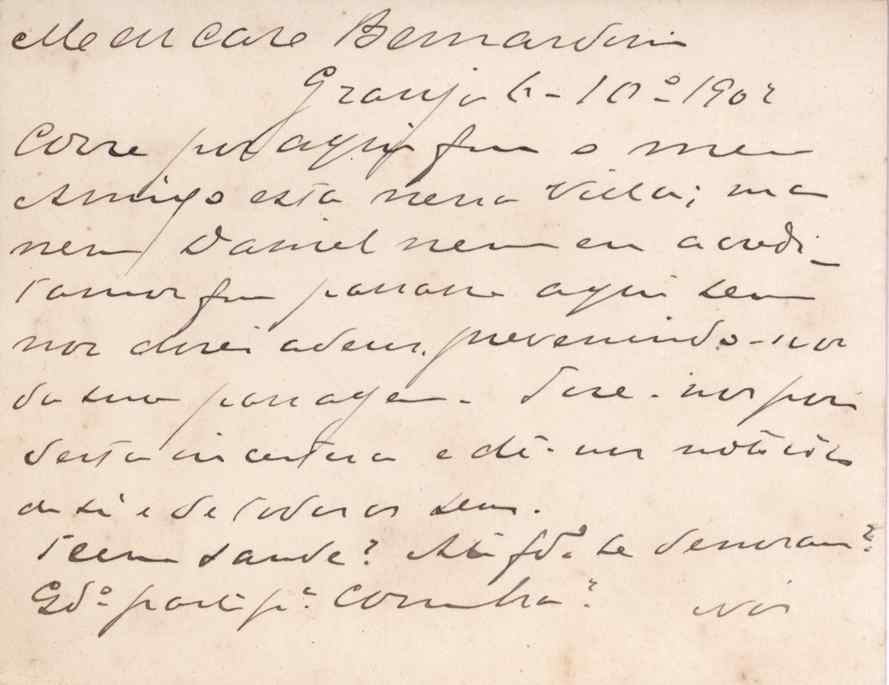 Meu caro Bernardino
Granja 6-10º-1902
Corre por aqui que o meu
Amigo está nessa Villa; mas
nem Daniel nem eu acredi-
tamos que passasse aqui sem
nos dizer adeus, prevenindo-nos
da sua passagem. Tire-nos pois
desta incerteza e dê-nos noticias
de si e de todos os seus.
Teem saude? Até qdº se demoram?
Qdº parte pª Coimbra?